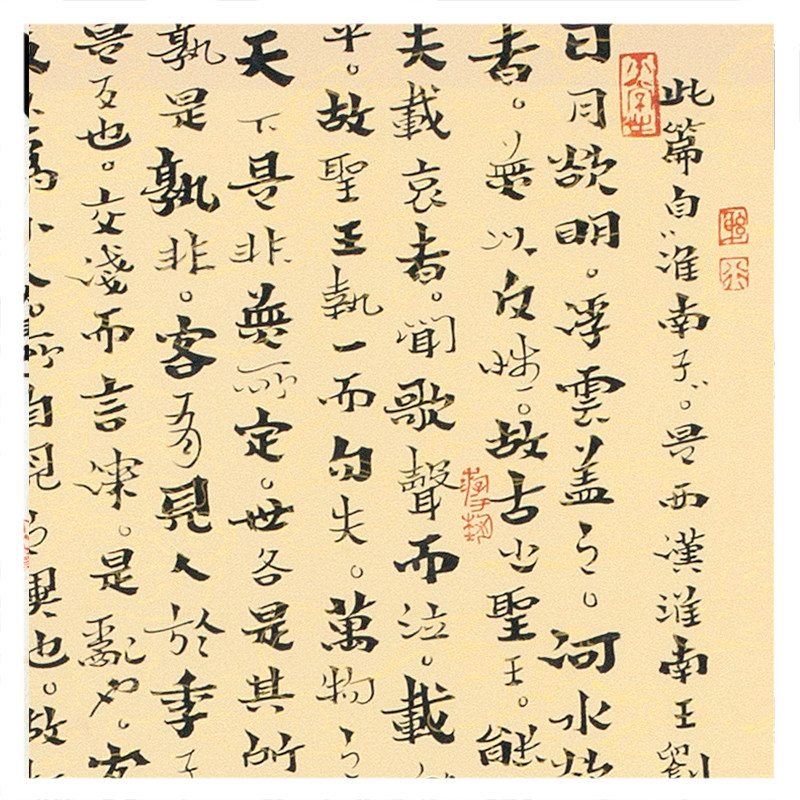 此篇自淮南子。是西漢淮南王劉
日月欲明。浮雲蓋之。河水欲
者。無以反性。故古之聖王。能
夫載哀者。聞歌聲而泣。載
平。故聖王執一而勿失。萬物之
天下是非無所定。世各是其所
孰是孰非。客有見人於季子
是反也。交淺而言深。是亂也。客
以為小人。所自視之異也。故